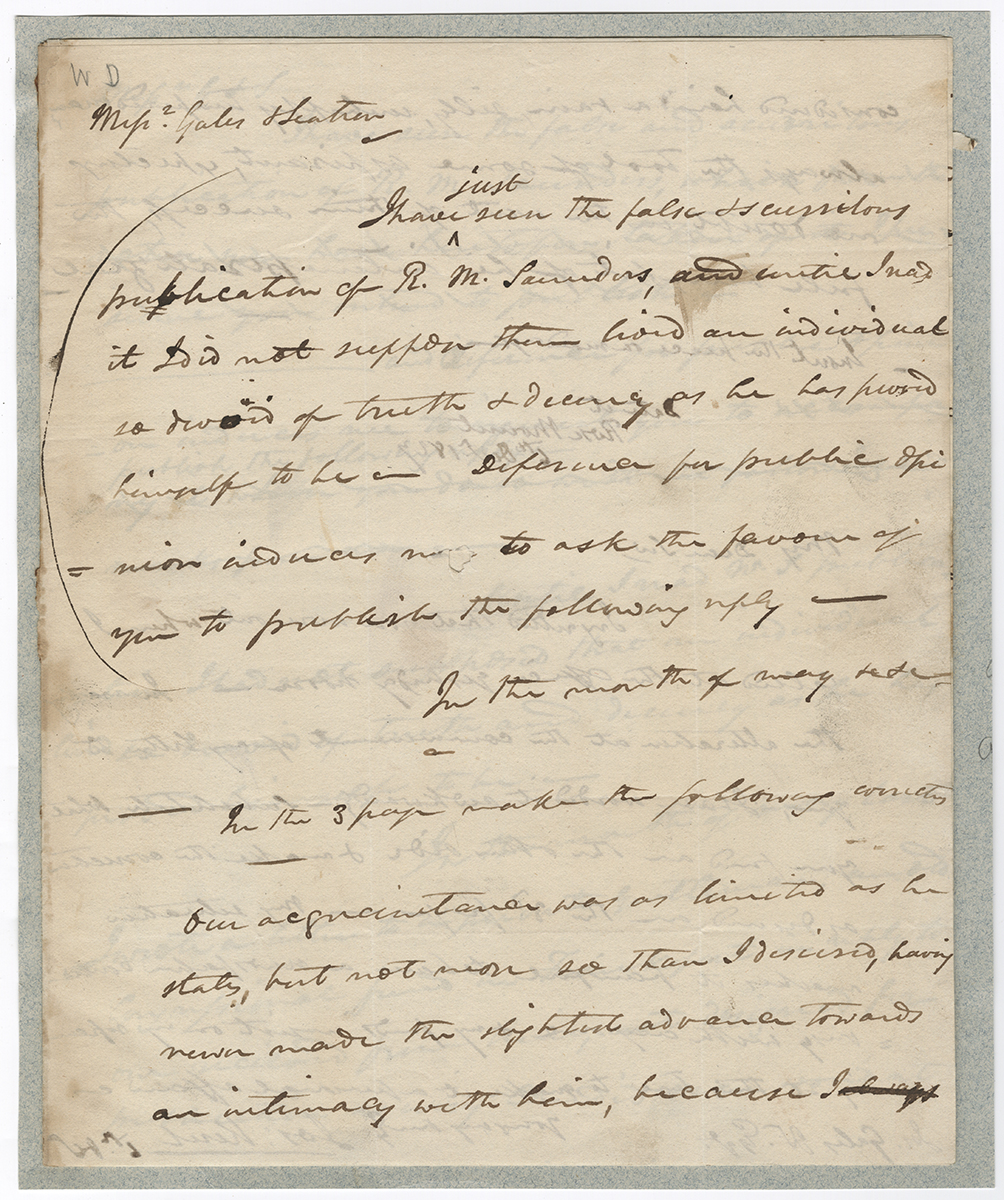 W D
Messrs. Gales & Seaton
just
I have ^ seen the false & scurrilous
publication of R. M. Saunders, and untie I read
it I did not suppose there lived an individual
so devoid of truth & decency, as he has proved
himself to be — Deference for public Opi
= nion induces me to ask the favour of
you to publish the following reply —
In the month of may
— In the 3 page make the following
Our acquaintance was as limited as he
states, but not more so than I desired, having
never made the slightest advance towards
an intimacy with him, because I always